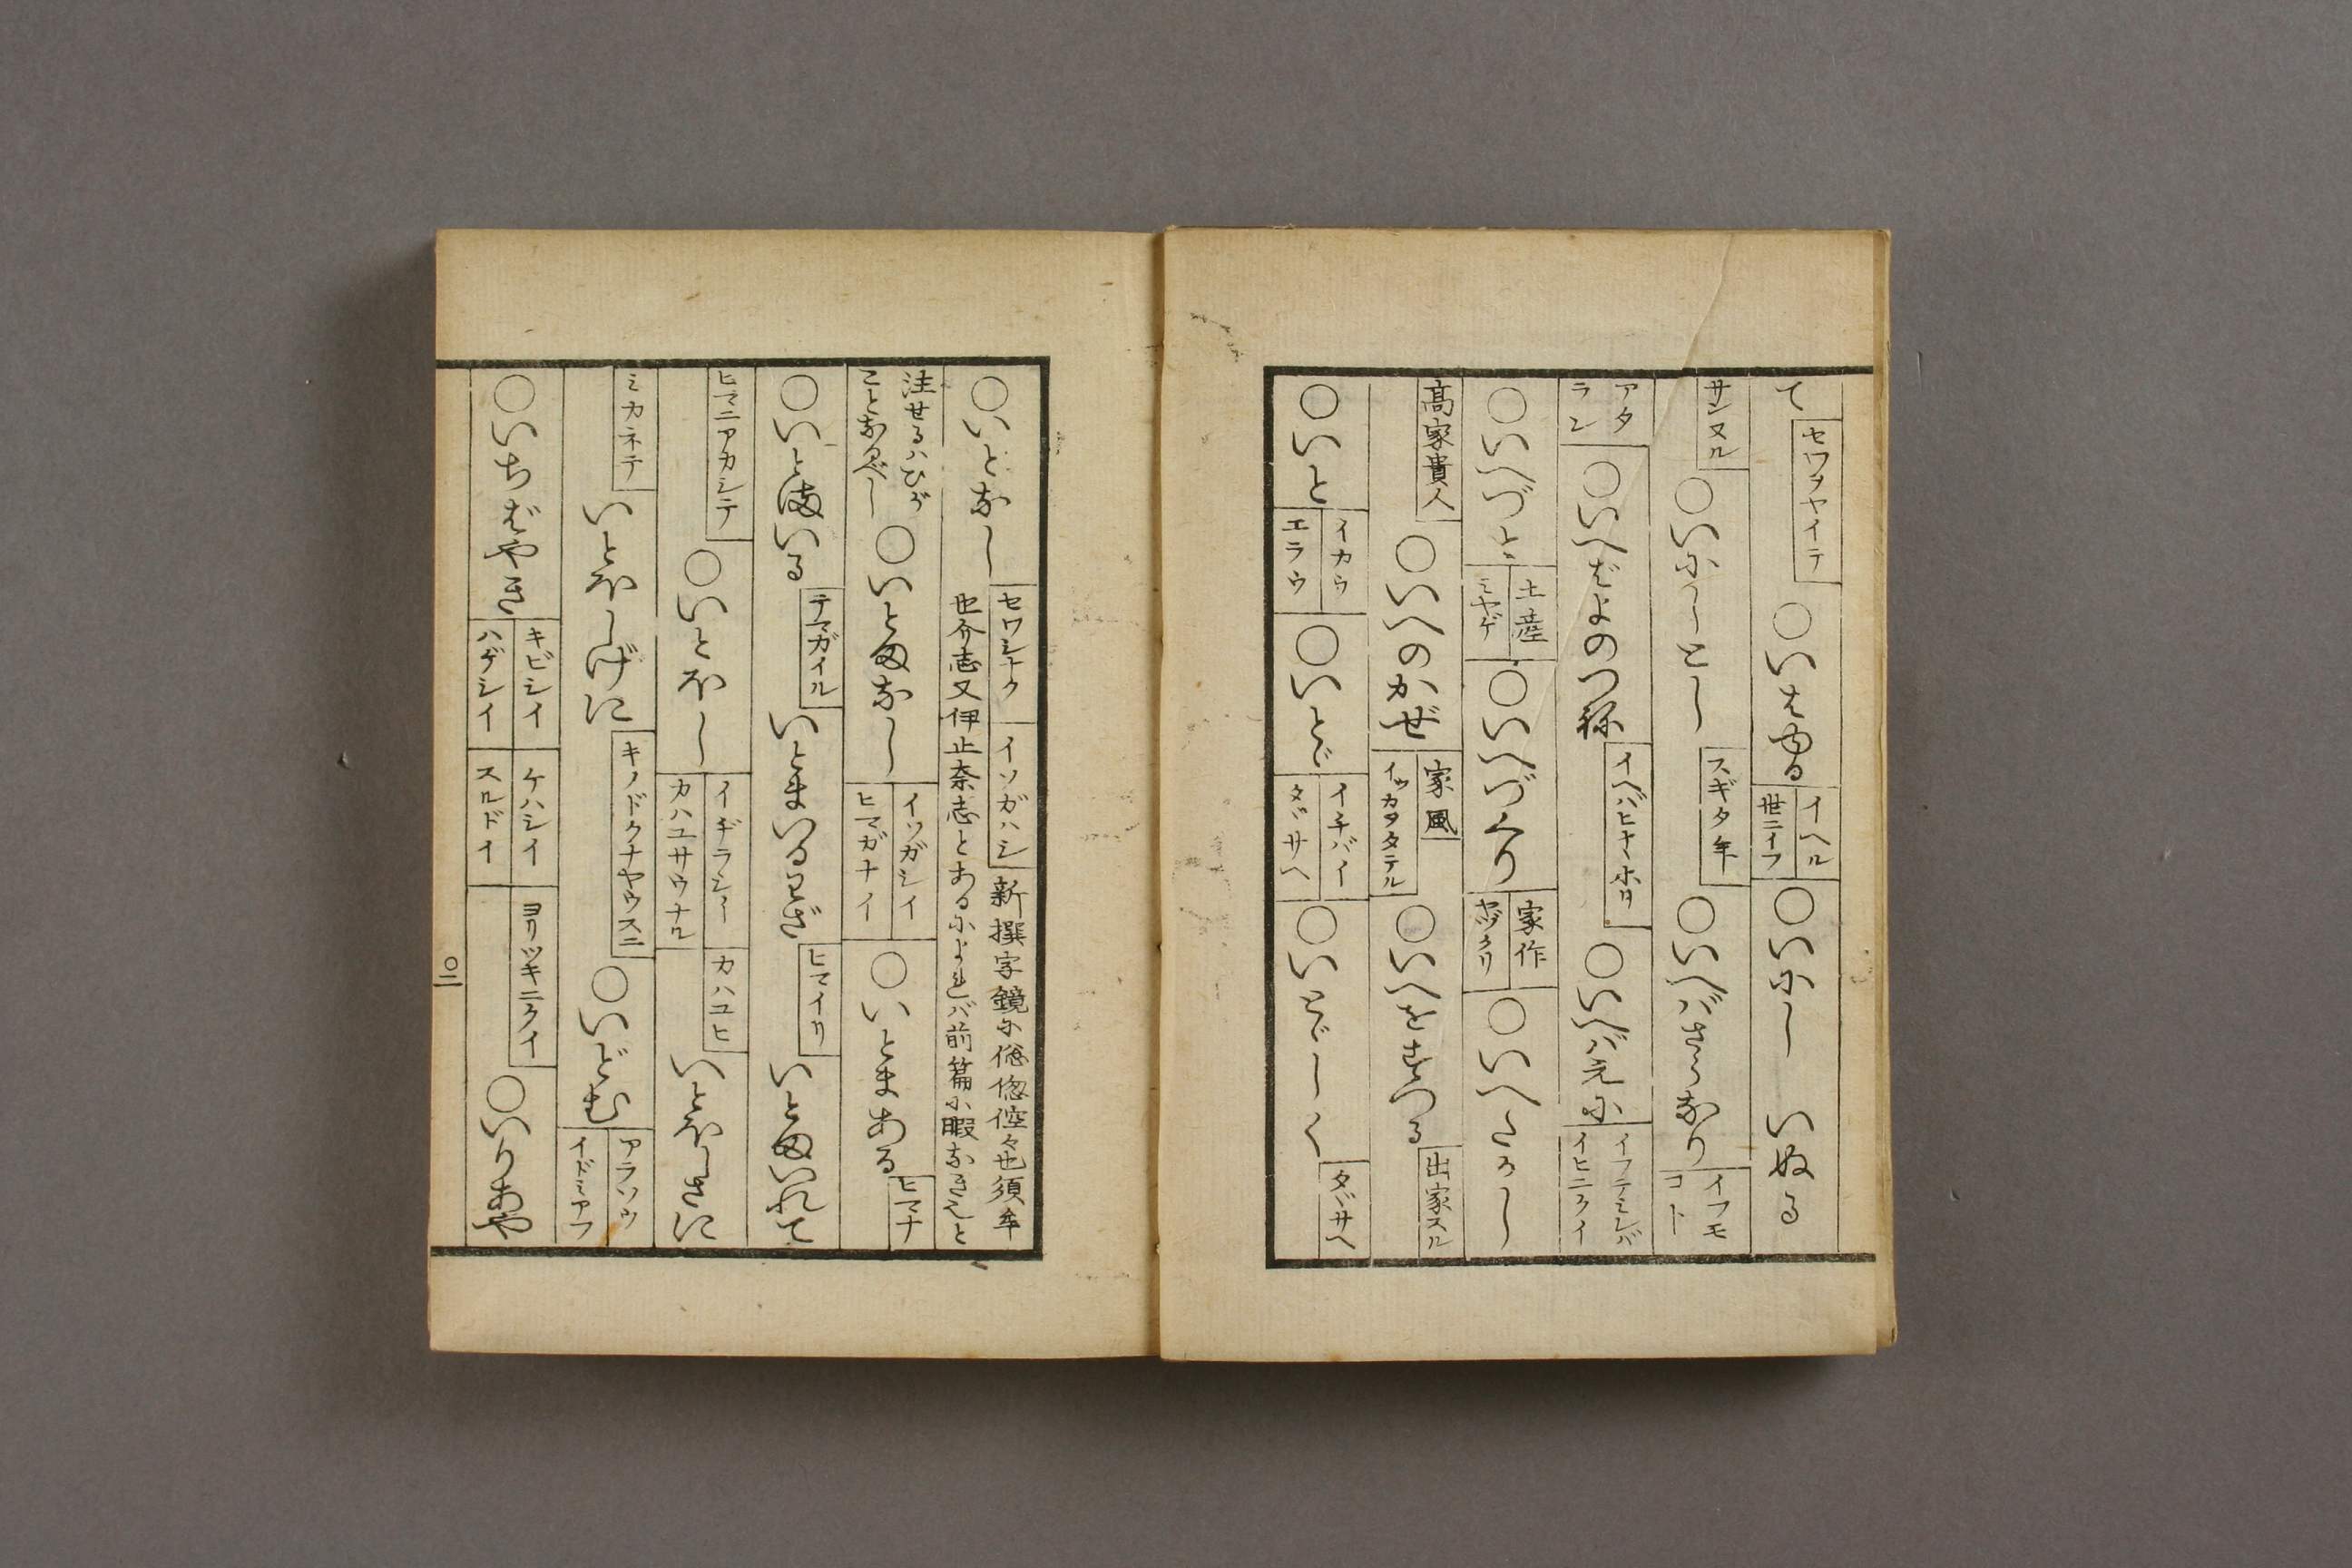 て セワヲヤイテ ○いはゆる イヘル 世ニイフ ○いにし いぬる
サンヌル ○いにしとし スギタ年 ○いへばさらなり イフモコト
アタラシ ○いへばよのつね イヘバヒナヽホリ ○いへバえに イフテミレバ イヒニクイ
○いへづと 土産 ミヤゲ ○いへづくり 家作 ヤヅクリ ○いへたかし
高家貴人 ○いへのかぜ 家風 イツカヲタテル ○いへをすつる 出家スル
○いと イカウ エラウ ○いとど イチバイ タヾサヘ ○いとどしく タヾサヘ
○いとなし セワシナク イソガハシ 新撰字鏡に 也須牟
世介志又伊止奈志とあるによれバ前篇に暇なきえと
注せるハひが
ことなるべし ○いとまなし イソガシイ ヒマガナイ ○いとまある ヒマナ
○いとまいる テマガイル いとまいるわざ ヒマイリ いとまいれて
ヒマニアカシテ ○いとほし イヂラシイ カハユサウナル カハユヒ いとほしさに
ミカネテ いとほしげに キノドクナヤウスニ ○いどむ アラソウ イドミアフ
○いちはやき キビシイ ハゲシイ ケハシイ スルドイ ヨリツキニクイ ○いりあや
○二